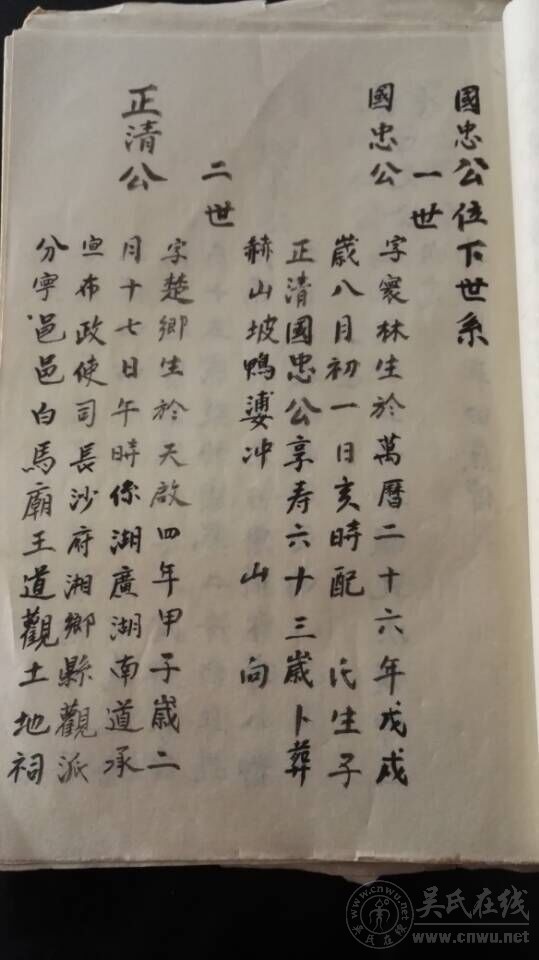 國忠公位下世系
一世
國忠公
字寰林生於萬曆二十六年戊戌
歲八月初一日亥時配 氏生子
正清國忠公享寿六十三歲卜葬
赫山坡鴨婆冲 山 向
二世
正清公
字楚鄉生於天啟四年甲子歲二
月十七日午時係湖廣湖南道承
宣布政使司長沙府湘鄉縣觀派
分寧邑邑白馬廟王道觀土地祠
吴氏在线
www.cnwu.net